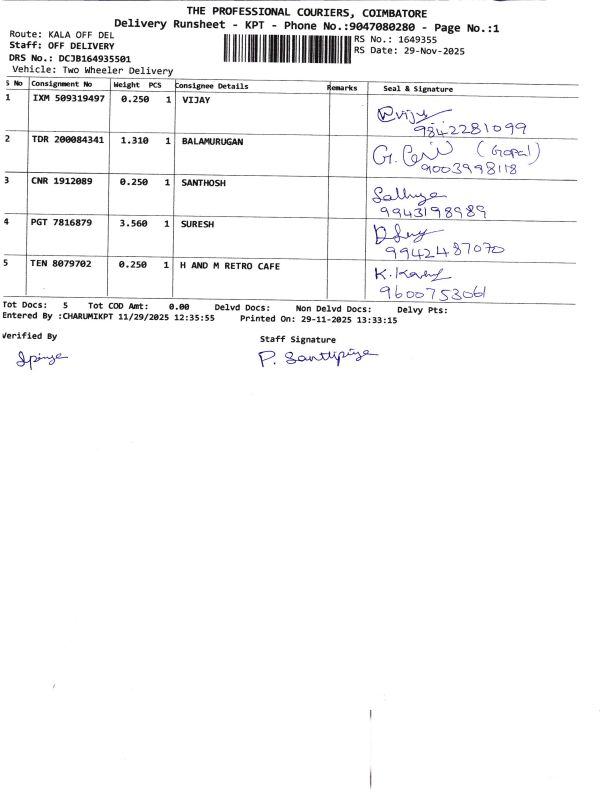 THE PROFESSIONAL COURIERS, COIMBATORE
Delivery Runsheet - KPT - Phone No.:9047080280 - Page No.:1
Route: KALA OFF DEL
RS No.: 1649355
Staff: OFF DELIVERY
RS Date: 29-Nov-2025
DRS No.: DCJB164935501
Vehicle: Two Wheeler Delivery
S No Consignment No Weight PCS Consignee Details Remarks Seal & Signature
1 IXM 509319497 0.250 1 VIJAY
9842281099
2 TDR 200084341 1.310 1 BALAMURUGAN
(Gopal)
9003998118
3 CNR 1912089 0.250 1 SANTHOSH
9943198989
4 PGT 7816879 3.560 1 SURESH
9942487070
5 TEN 8079702 0.250 1 H AND M RETRO CAFE
9600753061
Tot Docs: 5 Tot COD Amt: 0.00 Delvd Docs: Non Delvd Docs: Delvy Pts:
Entered By :CHARUMIKPT 11/29/2025 12:35:55 Printed On: 29-11-2025 13:33:15
Verified By
Staff Signature